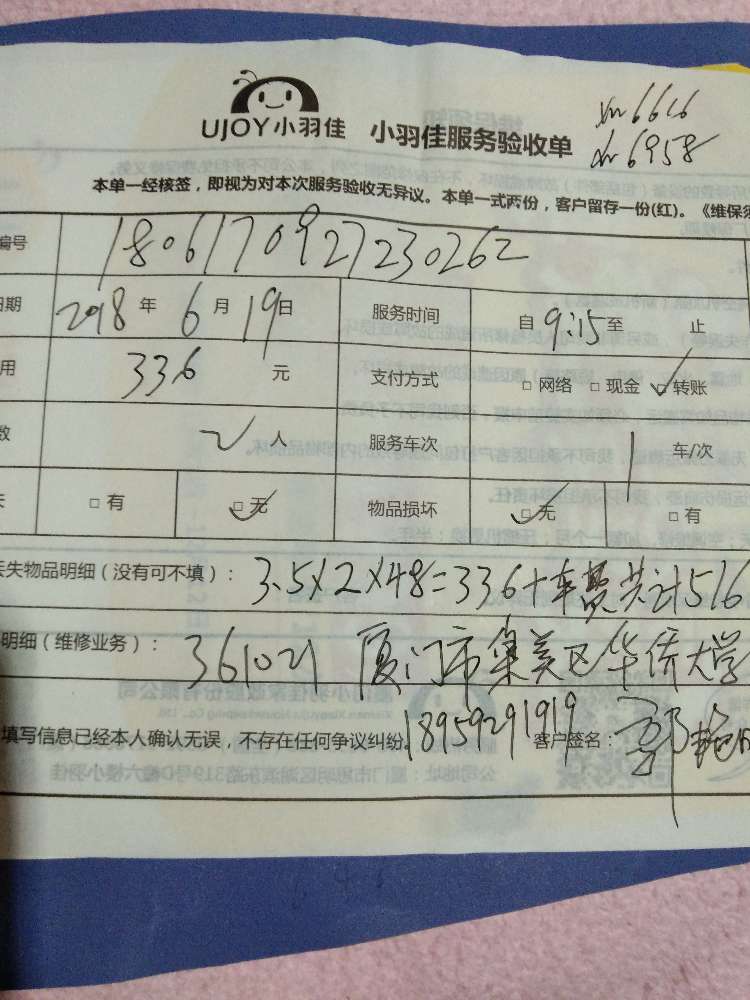 xm6616
UJOY小羽佳 小羽佳服务验收单
xm6958
本单一经核签，即视为对本次服务验收无异议。本单一式两份，客户留存一份(红)。《维保须
编号 1806170927230262
日期 2018年6月19日 服务时间 自9:15至 止
用 336元 支付方式 □网络 □现金 ☑转账
数 2人 服务车次 1车/次
失 □有 ☑无 物品损坏 ☑无 □有
丢失物品明细（没有可不填）：3.5×2×48=336+车费共计516
明细（维修业务）：361021 厦门市集美区华侨大学
填写信息已经本人确认无误，不存在任何争议纠纷。18959291919 客户签名：郭艳